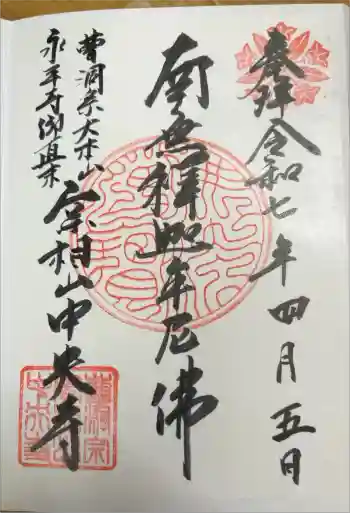 奉拝 令和七年四月五日
南無釋迦牟尼佛
曹洞宗大本山
永平寺御直末
會相山中央寺
曹洞宗
中央寺